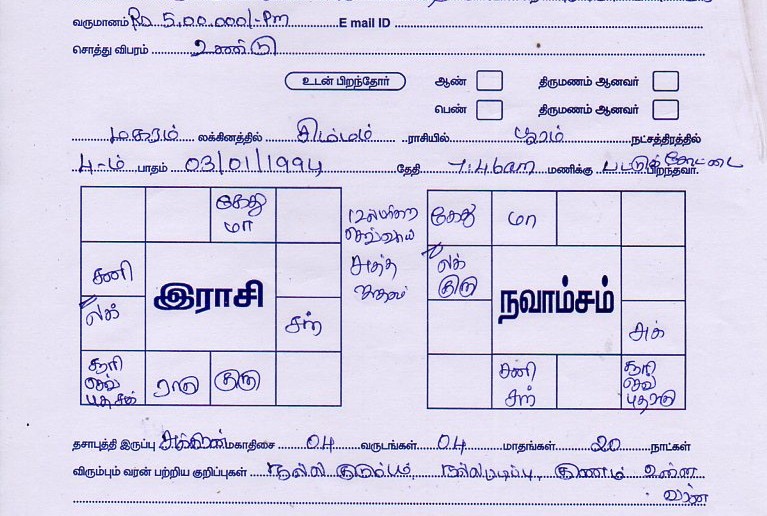 வருமானம் Rs 5,00,000/-Pm E mail ID
சொத்து விபரம் உண்டு
உடன் பிறந்தோர் ஆண் திருமணம் ஆனவர்
பெண் திருமணம் ஆனவர்
மகரம் லக்கினத்தில் சிம்மம் ராசியில் பூரம் நட்சத்திரத்தில்
4-ம் பாதம் 03/01/1994 தேதி 7:46am மணிக்கு பட்டுக்கோட்டை பிறந்தவர்.
கேது
மா
செவ்வாய்
கேது மா
சனி
இராசி
லக்
சந்
சூரி
செவ்
புத சுக்
ராகு குரு
லக்
குரு
நவாம்சம்
சுக்
சனி
சந்
சூரி
செவ்
புத ராகு
தசாபுத்தி இருப்பு சுக்கிரன் மகாதிசை 04 வருடங்கள் 04 மாதங்கள் 20 நாட்கள்
விரும்பும் வரன் பற்றிய குறிப்புகள் நல்ல குடும்பம், நல்ல படிப்பு, குணம் உள்ள
வரன்